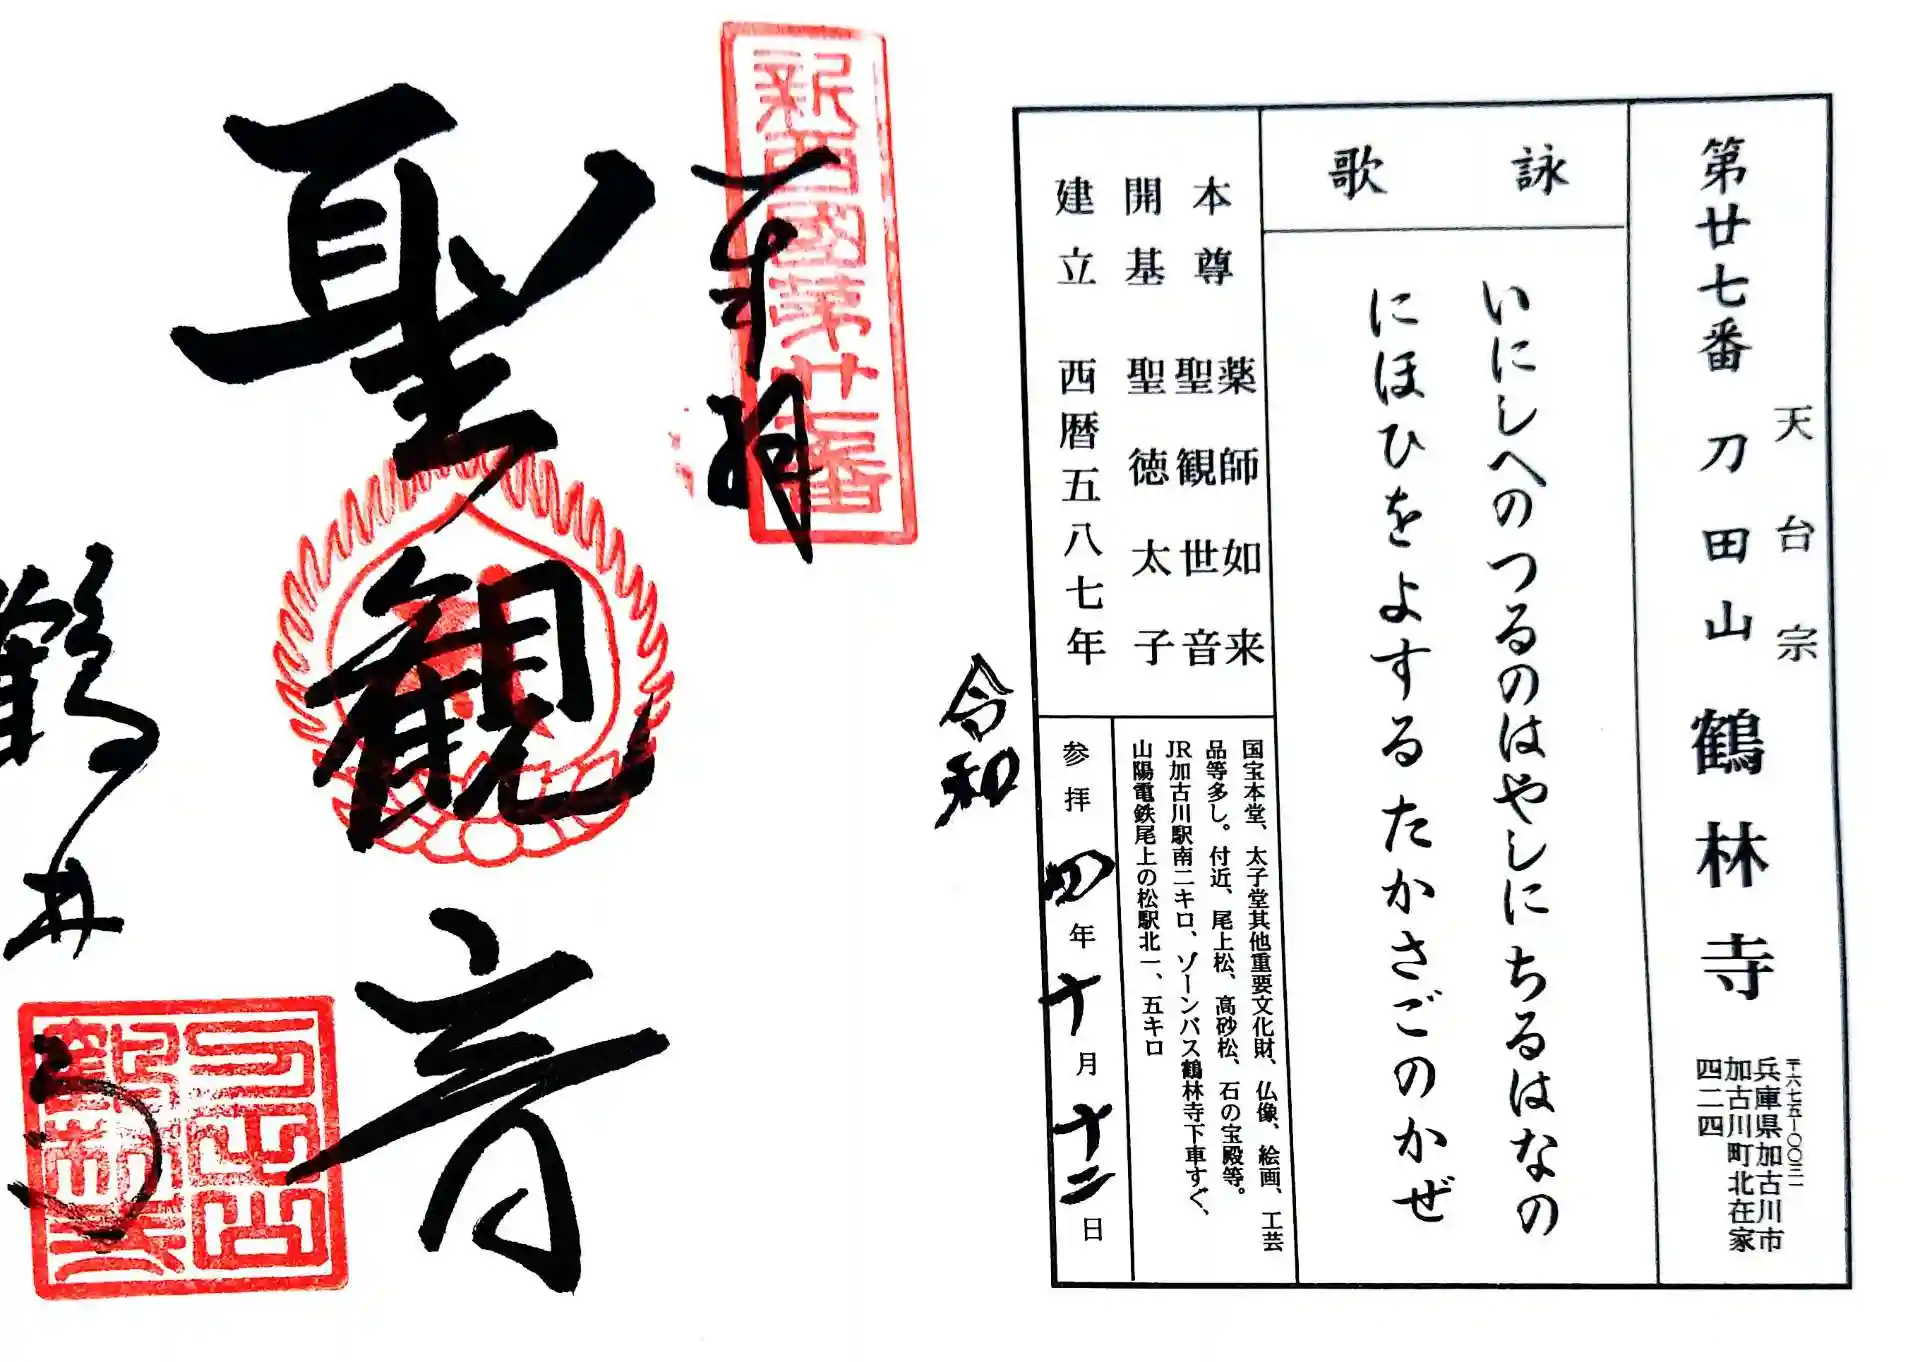 天台宗
第廿七番 刀田山 鶴林寺
〒六七五-〇〇三一
兵庫県加古川市
加古川町北在家
四二四
詠歌
いにしへのつるのはやしにちるはなの
にほひをよするたかさごのかぜ
本尊 薬師如来
聖観世音
開基 聖徳太子
建立 西暦五八七年
国宝本堂、太子堂其他重要文化財、仏像、絵画、工芸
品等多し。付近、尾上松、高砂松、石の宝殿等。
JR加古川駅南二キロ、ゾーンバス鶴林寺下車すぐ、
山陽電鉄尾上の松駅北一、五キロ
令和
参拝 四年十月十二日
新西國第廿七番
奉拝
聖観音
鶴林寺
刀田山
鶴林寺